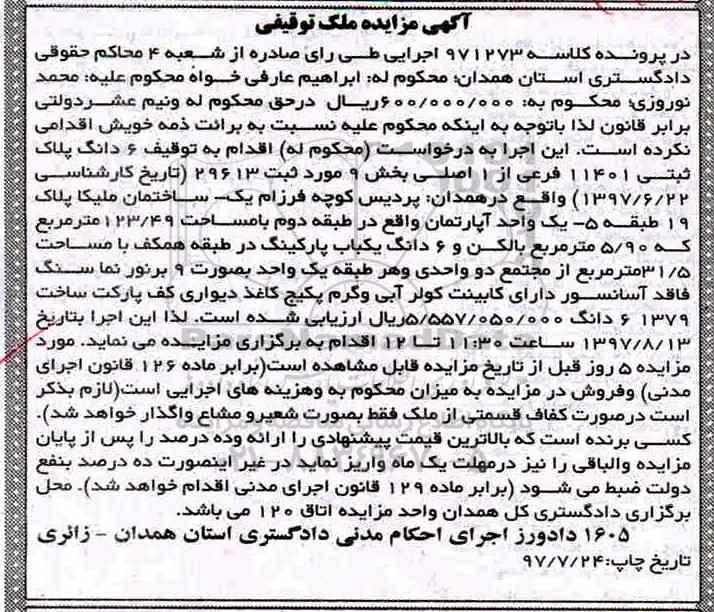 آگهی مزایده ملک توقیفی
در پرونده کلاسه ۹۷۱۲۷۳ اجرایی طی رای صادره از شعبه ۴ محاکم حقوقی
دادگستری استان همدان: محکوم له: ابراهیم عارفی خواه محکوم علیه: محمد
نوروزی؛ محکوم به: ۶۰۰/۰۰۰/۰۰۰ریال درحق محکوم له ونیم عشردولتی
برابر قانون لذا باتوجه به اینکه محکوم علیه نسبت به برائت ذمه خویش اقدامی
نکرده است. این اجرا به درخواست (محکوم له) اقدام به توقیف ۶ دانگ پلاک
ثبتی ۱۱۴۰۱ فرعی از ۱ اصلی بخش ۹ مورد ثبت ۲۹۶۱۳ (تاریخ کارشناسی
۱۳۹۷/۶/۲۲) واقع درهمدان: پردیس کوچه فرزام یک- ساختمان ملیکا پلاک
۱۹ طبقه ۵- یک واحد آپارتمان واقع در طبقه دوم بامساحت ۱۲۳/۴۹مترمربع
که ۵/۹۰ مترمربع بالکن و ۶ دانگ یکباب پارکینگ در طبقه همکف با مساحت
۳۱/۵مترمربع از مجتمع دو واحدی وهر طبقه یک واحد بصورت ۹ برنور نما سنگ
فاقد آسانسور دارای کابینت کولر آبی وگرم پکیج کاغذ دیواری کف پارکت ساخت
۱۳۷۹ ۶ دانگ ۵/۵۵۷/۰۵۰/۰۰۰ریال ارزیابی شده است. لذا این اجرا بتاریخ
۱۳۹۷/۸/۱۳ ساعت ۱۱:۳۰ تا ۱۲ اقدام به برگزاری مزایده می نماید. مورد
مزایده ۵ روز قبل از تاریخ مزایده قابل مشاهده است(برابر ماده ۱۲۶ قانون اجرای
مدنی) وفروش در مزایده به میزان محکوم به وهزینه های اجرایی است(لازم بذکر
است درصورت کفاف قسمتی از ملک فقط بصورت شعیرو مشاع واگذار خواهد شد).
کسی برنده است که بالاترین قیمت پیشنهادی را ارائه وده درصد را پس از پایان
مزایده والباقی را نیز درمهلت یک ماه واریز نماید در غیر اینصورت ده درصد بنفع
دولت ضبط می شود (برابر ماده ۱۲۹ قانون اجرای مدنی اقدام خواهد شد). محل
برگزاری دادگستری کل همدان واحد مزایده اتاق ۱۲۰ می باشد.
۱۶۰۵ دادورز اجرای احکام مدنی دادگستری استان همدان - زائری
تاریخ چاپ:۹۷/۷/۲۴